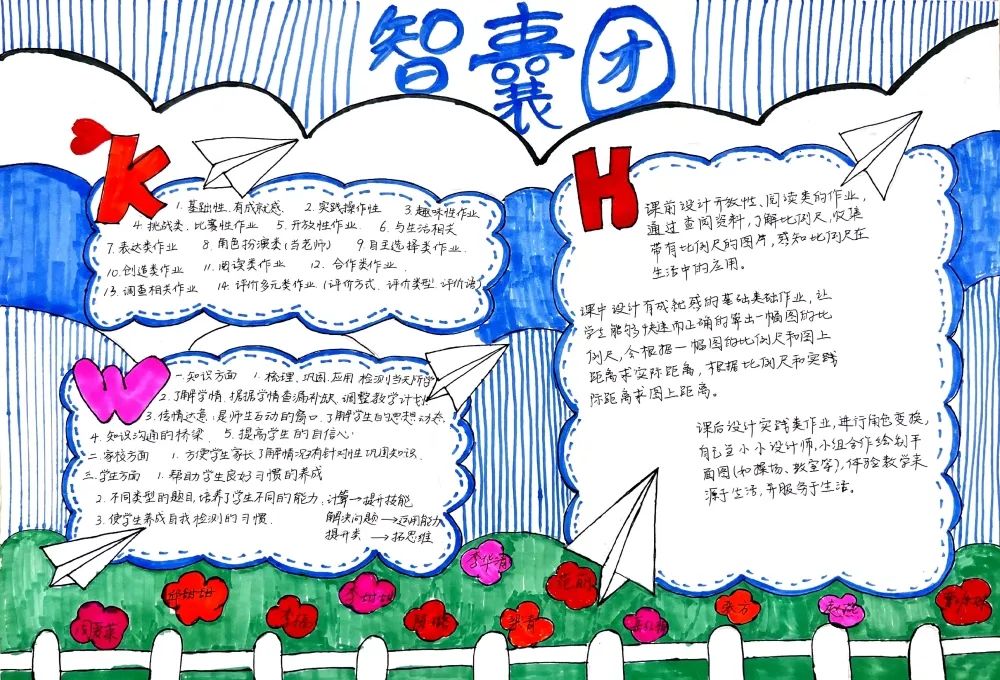 智囊团
K
1. 基础性.有成就感 2. 实践操作性 3. 趣味性作业
4. 挑战类.比赛性作业 5. 开放性作业. 6. 与生活相关
7. 表达类作业 8. 角色扮演类(当老师) 9. 自主选择类作业.
10. 创造类作业 11. 阅读类作业 12. 合作类作业.
13. 调查相关作业 14. 评价多元类作业(评价方式、评价类型、评价语)
W
一.知识方面 1. 梳理、巩固.应用 检测当天所学
2. 了解学情.根据学情查漏补缺.调整教学计划.
3. 传情达意:是师生互动的窗口.了解学生的思想动态.
4. 知识沟通的桥梁. 5. 提高学生的自信心.
二.家校方面 1. 方便学生家长了解情况有针对性巩固知识.
三.学生方面 1. 帮助学生良好习惯的养成
2. 不同类型的题目,培养了学生不同的能力:计算→提升技能
3. 使学生养成自我检测的习惯. 解决问题→运用能力
提升类→拓思维
H
课前设计开放性、阅读类的作业,
通过查阅资料,了解比例尺,收集
带有比例尺的图片,感知比例尺在
生活中的应用。
课中设计有成就感的基础基础作业,让
学生能够快速而正确的算出一幅图的比
例尺,会根据一幅图的比例尺和图上
距离求实际距离,根据比例尺和实践
际距离求图上距离。
课后设计实践类作业,进行角色变换,
自己当小小设计师,小组合作绘制平
面图(如操场、教室等),体验数学来
源于生活,并服务于生活。
李华清
邱甜甜
李甜甜
张方